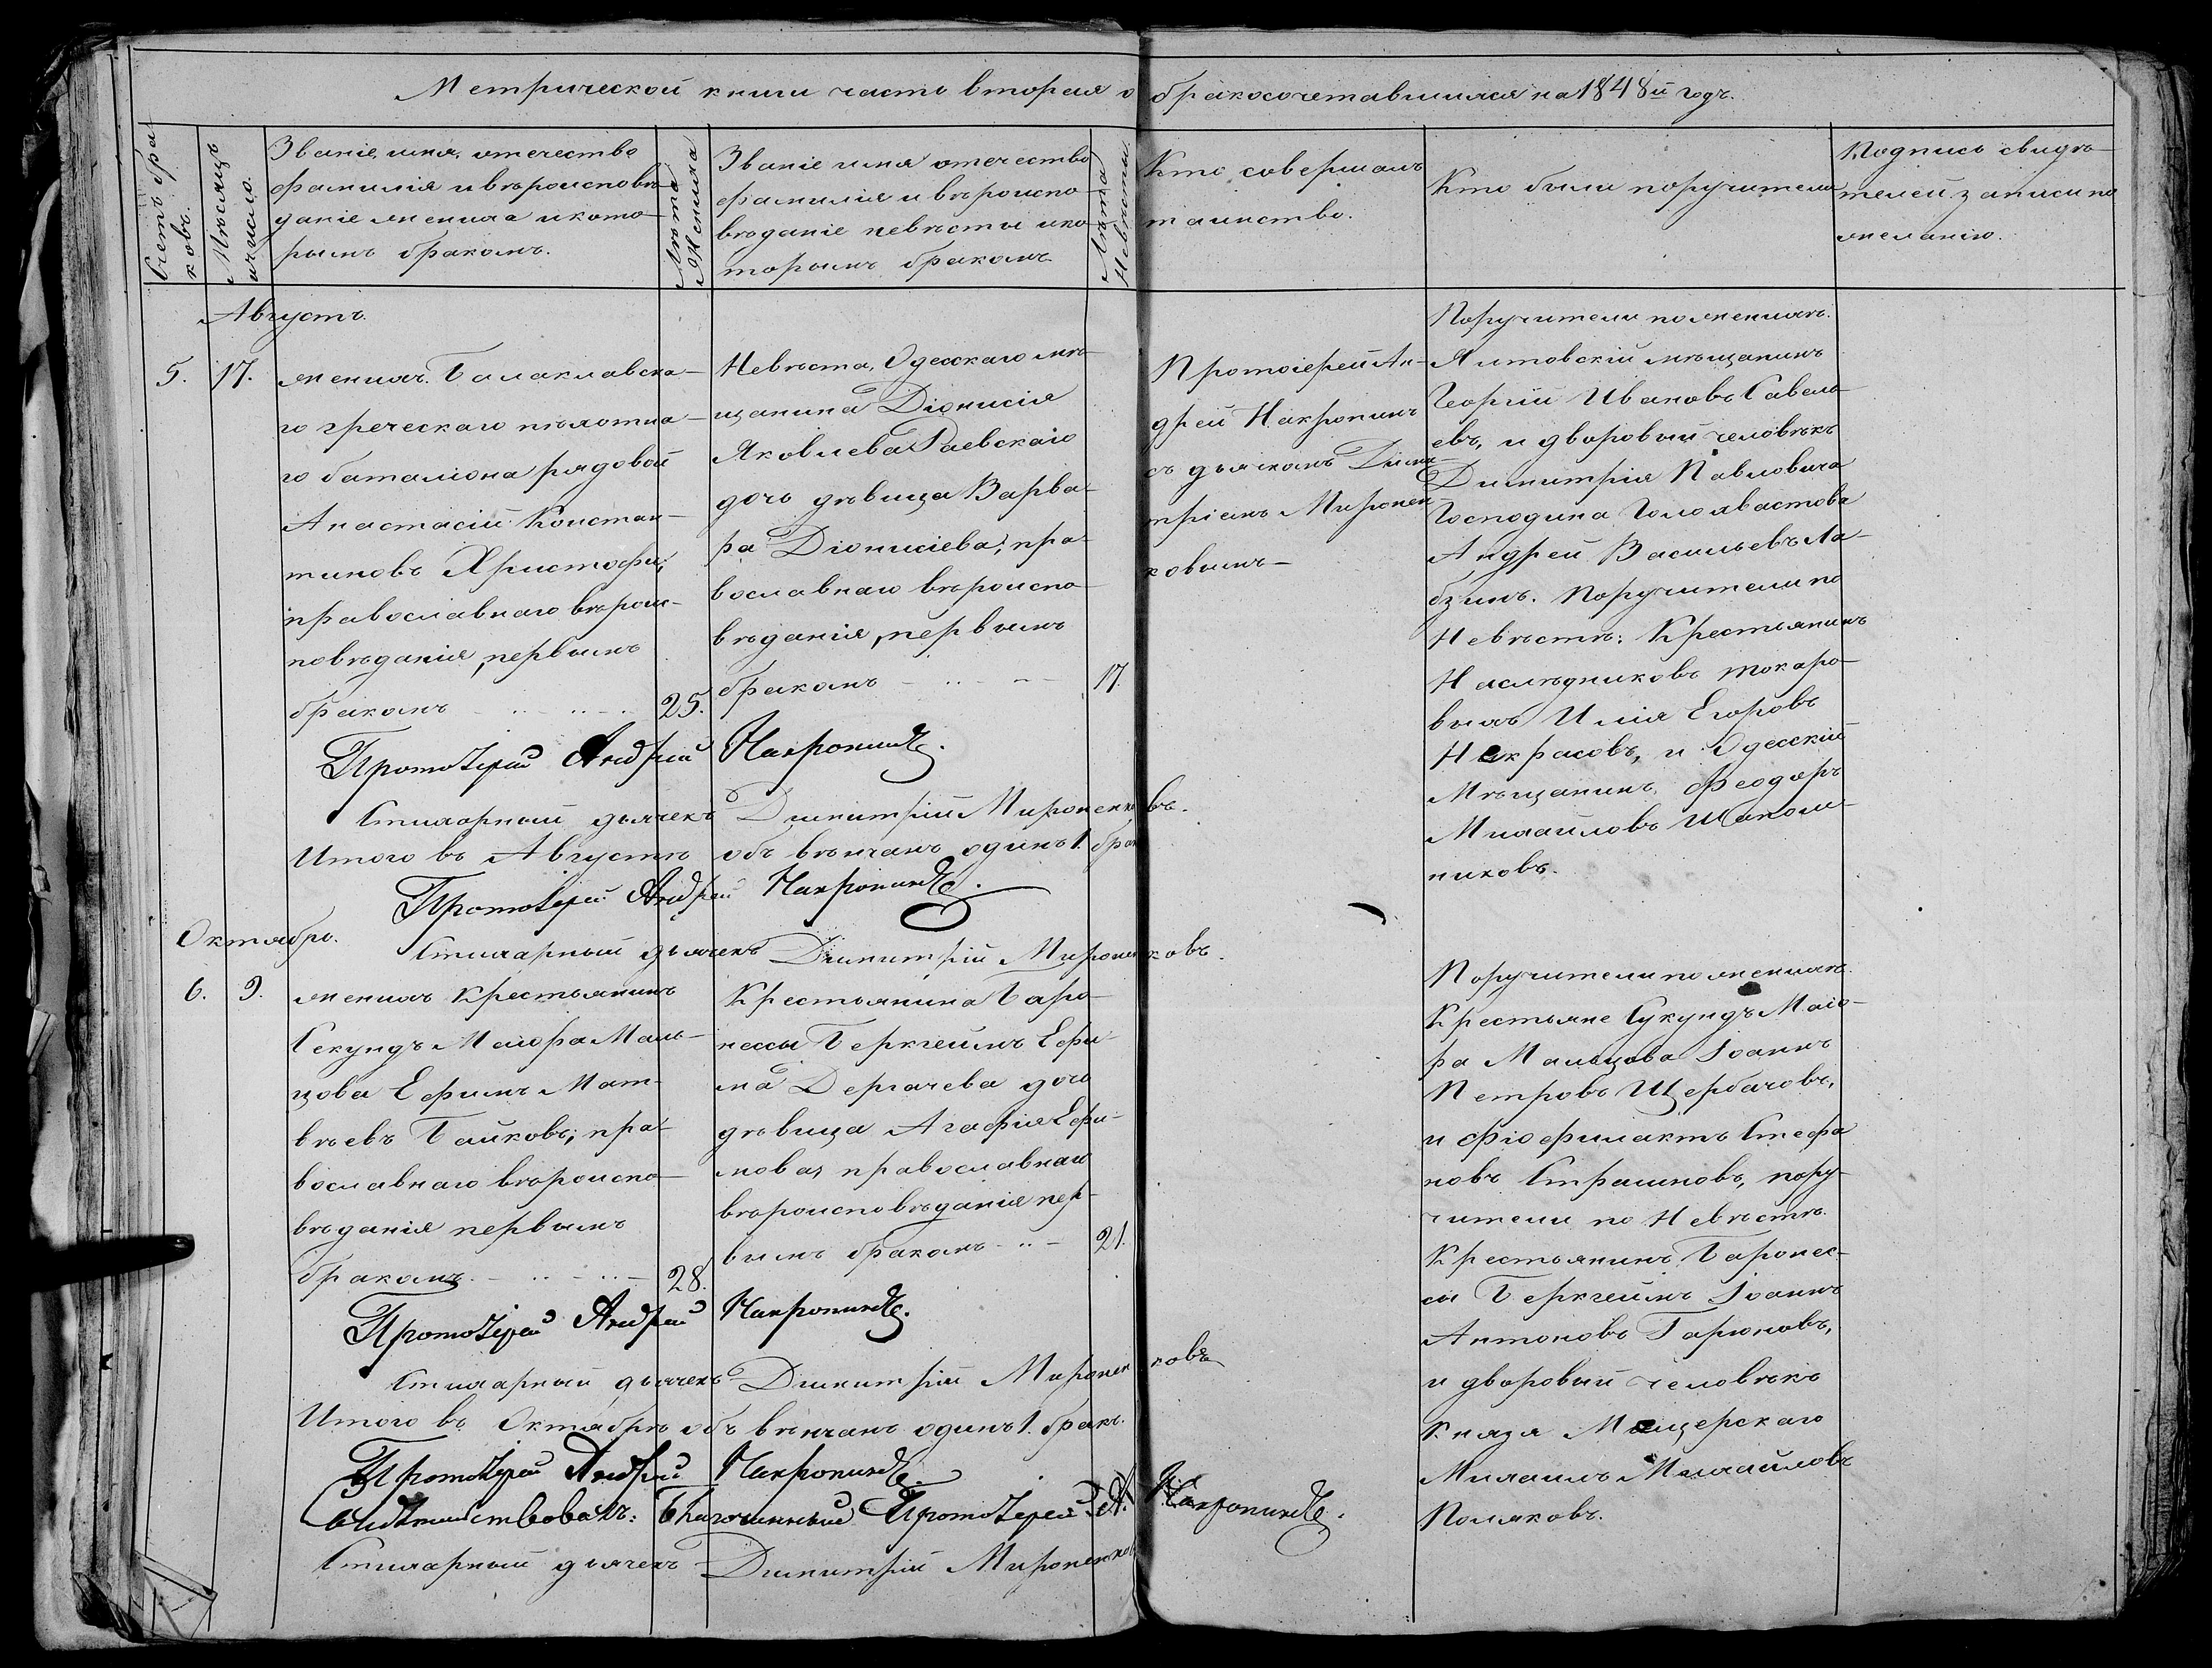 Метрической книги часть вторая о бракосочетавшихся на 1848й годъ.
Счетъ бра-
ковъ.
Мѣсяцъ
и число.
Званіе, имя, отечество
фамилія и вѣроисповѣ-
даніе жениха и кото-
рымъ бракомъ.
Лѣта
Жениха
Званіе имя отечество
фамилія и вѣроиспо-
вѣданіе невѣсты и ко-
торымъ бракомъ
Лѣта
Невѣсты.
Кто совершалъ
таинство.
Кто были поручители
Подпись свидѣ-
телей записи по
желанію.
Августъ.
5.
17.
женихъ. Балаклавска-
го греческаго пѣхотна-
го баталіона рядовой
Анастасій Констан-
тиновъ Христофи;
православнаго вѣроис-
повѣданія, первымъ
бракомъ
25.
Невѣста, Одесскаго мѣ-
щанина Діонисія
Яковлева Раевскаго
дочь дѣвица Варва-
ра Діонисіева, пра-
вославнаго вѣроиспо-
вѣданія, первымъ
бракомъ
17.
Протоіерей Ан-
дрей Накропинъ
съ дьячкомъ Дими-
тріемъ Миронен-
ковымъ
Поручители по женихѣ.
Ялтовскій мѣщанинъ
Георгій Ивановъ Савель-
евъ, и дворовый человѣкъ
Димитрія Павловича
Господина Голохвастова
Андрей Васильевъ Ла-
бзинъ. Поручители по
Невѣстѣ: Крестьянинъ
Наслѣдниковъ Токаре-
выхъ Илія Егоровъ
Некрасовъ, и Одесскій
Мѣщанинъ Феодоръ
Михайловъ Шаполи-
никовъ.
Протоіерей Андрей Накропинъ.
Стихарный дьячекъ Димитрій Мироненковъ.
Итого въ Августѣ объ вѣнчанъ одинъ 1. брак
Протоіерей Андрей Накропинъ.
Стихарный дьячекъ Димитрій Мироненковъ.
Октябрь.
6.
9.
женихъ Крестьянинъ
Секундъ Маіора Маль-
цова Ефимъ Мат-
вѣевъ Байковъ; пра-
вославнаго вѣроиспо-
вѣданія первымъ
бракомъ
28.
Крестьянина Баро-
нессы Беркгеймъ Ефи-
ма Дергачева дочь
дѣвица Агафія Ефи-
мова, православнаго
вѣроисповѣданія пер-
вымъ бракомъ
21.
Поручители по женихѣ.
Крестьяне Сукундъ Маіо-
ра Мальцова Іоаннъ
Петровъ Щербачовъ,
и Фіофилактъ Стефа
новъ Страшновъ, пору-
чители по Невѣстѣ.
Крестьянинъ Баронес-
сы Беркгеймъ Іоаннъ
Антоновъ Гарюновъ,
и дворовый человѣкъ
Князя Мещерскаго
Михаилъ Михайловъ
Поляковъ.
Протоіерей Андрей Накропинъ.
Стихарный дьячекъ Димитрій Мироненковъ
Итого въ Октябрѣ объ вѣнчанъ одинъ 1. бракъ.
Протоіерей Андрей Накропинъ.
Свидѣтельствовалъ: Благочинный Протоіерей А. Накропинъ.
Стихарный дьячекъ Димитрій Мироненков